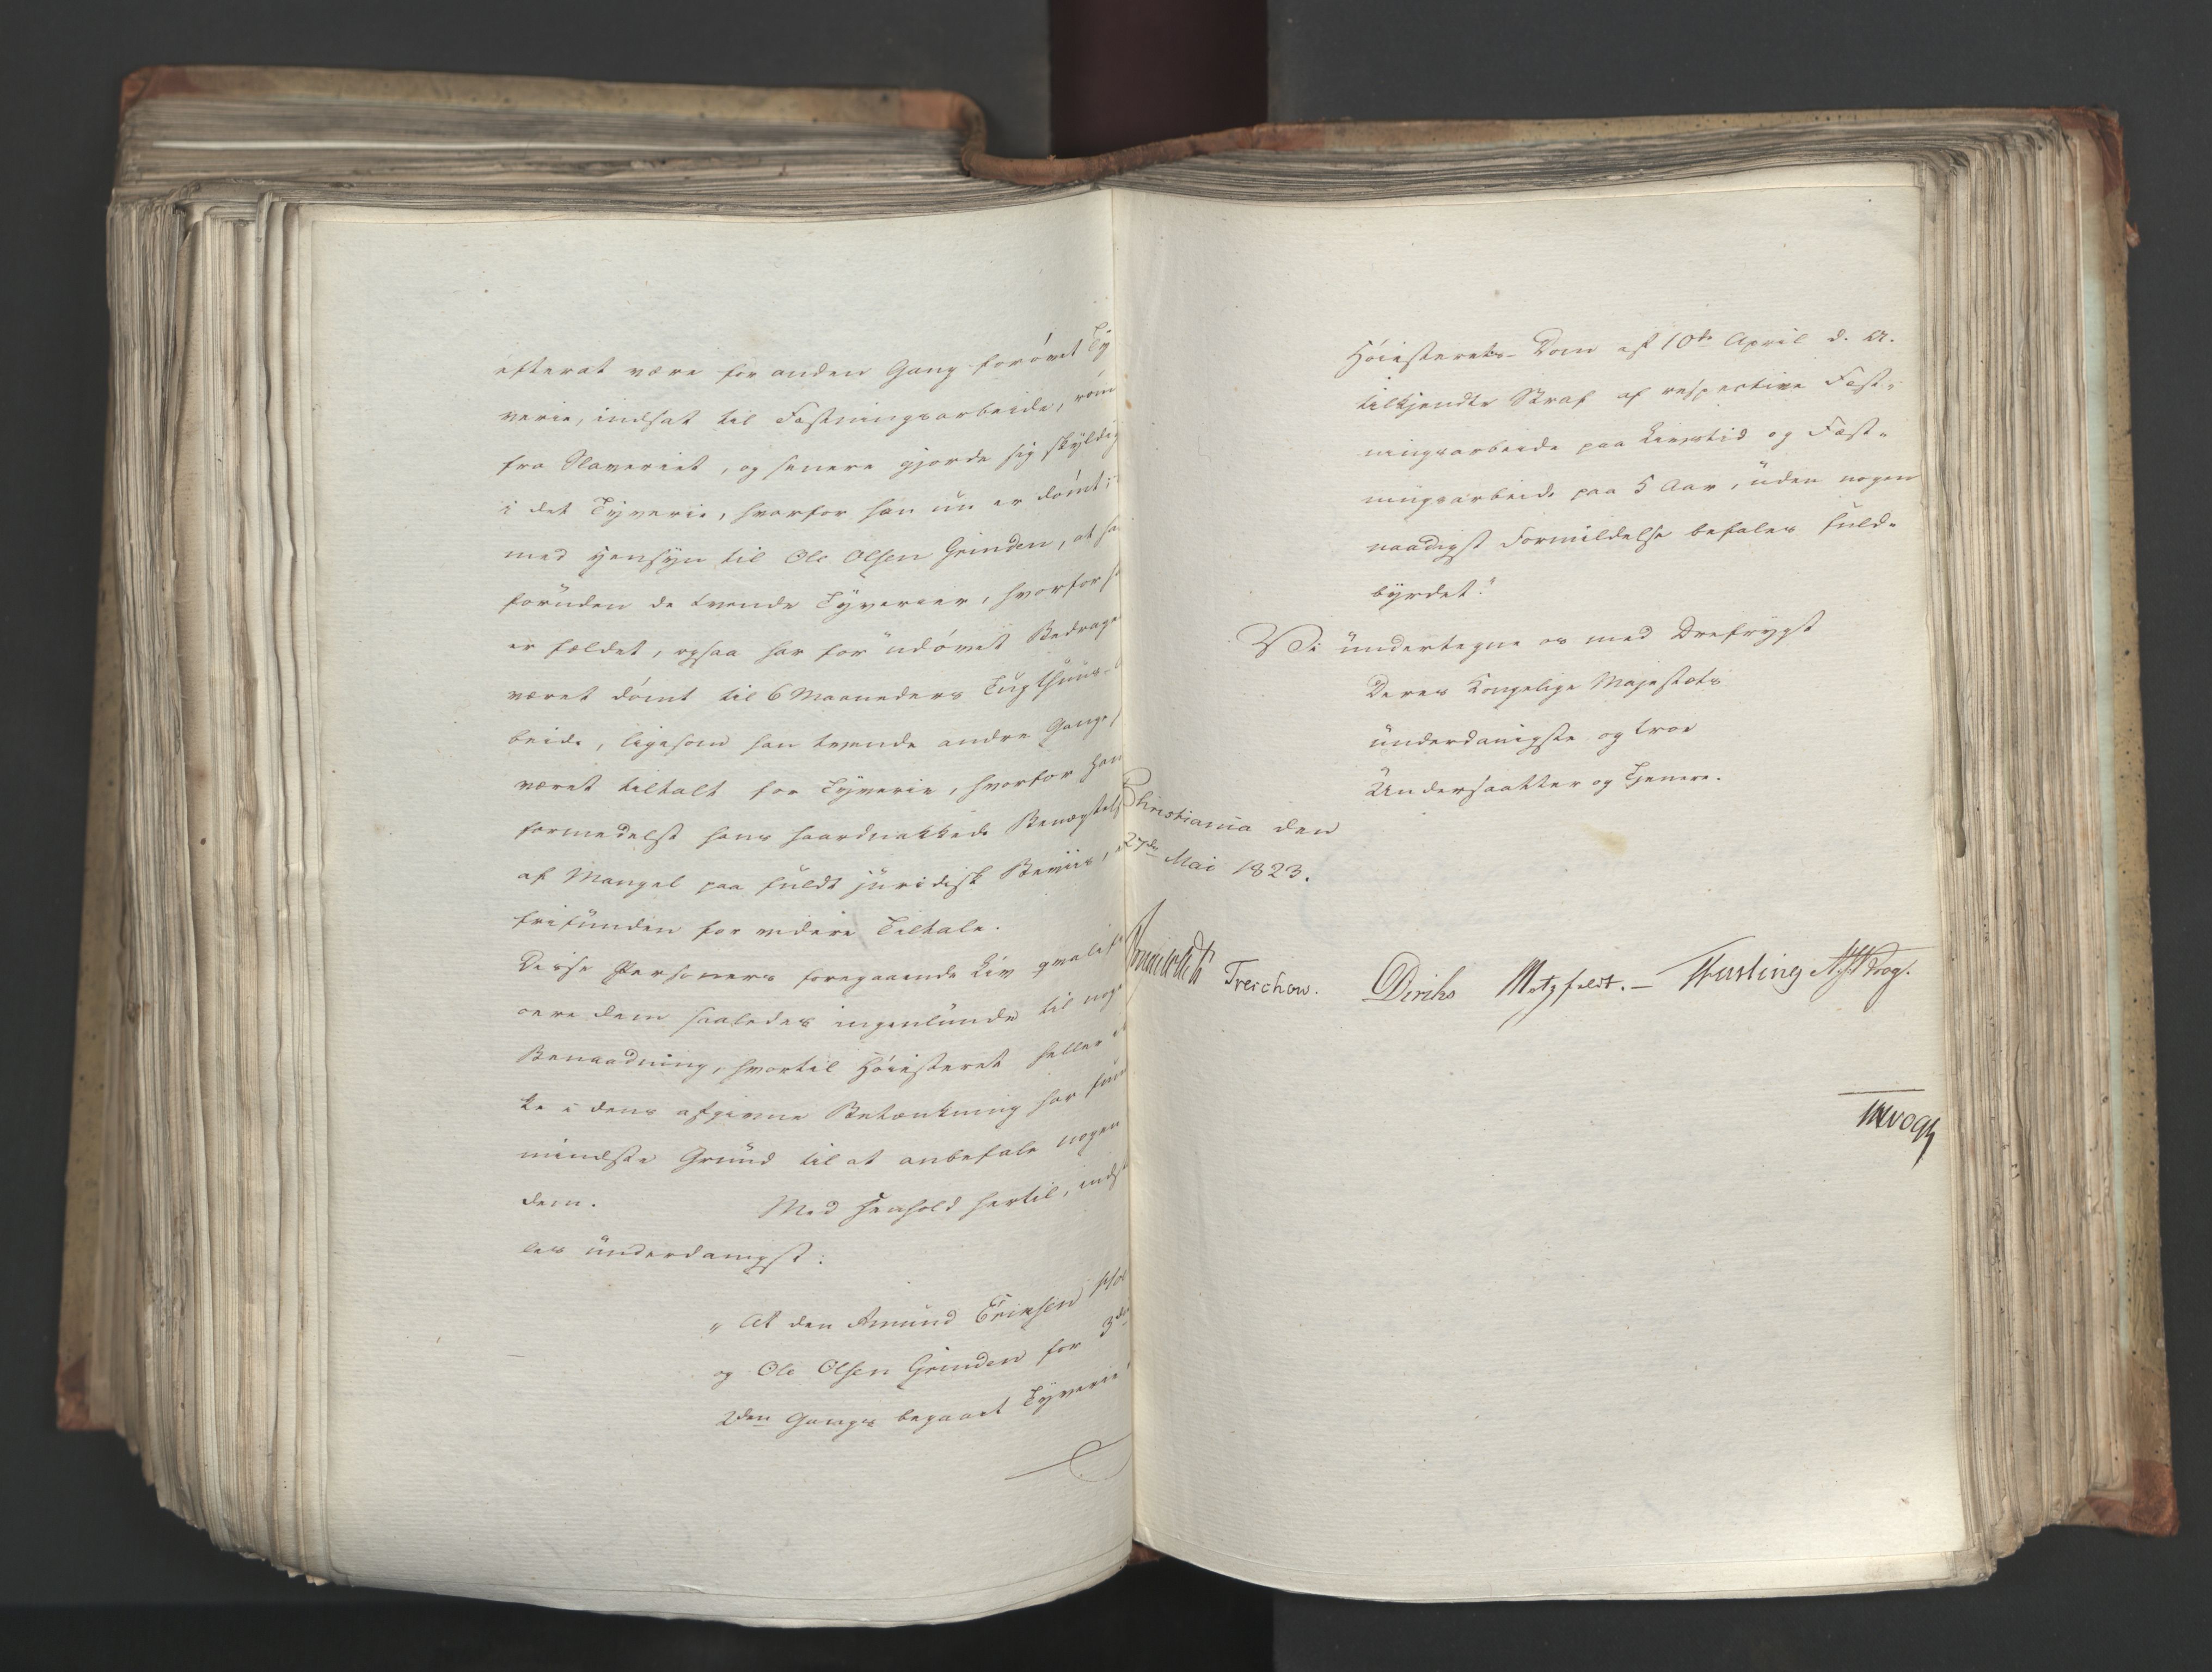 efterat være for anden Gang forøvet Ty
verie, indsat til Fæstningsarbeide, røm
fra Slaveriet, og senere gjorde sig skyldig
i det Tyverie, hvorfor han nu er dømt;
med Hensyn til Ole Olsen Grinden, at ha
foruden de tvende Tyverier, hvorfor h
er fældet, ogsaa har for udøvet Bedrage
været dømt til 6 Maaneders Tugthuus-
beide, ligesom han tvende andre Gange
været tiltalt for Tyverie, hvorfor han
formedelst hans haardnakkede Benægtels
af Mangel paa fuldt juridisk Beviis,
frifunden for videre Tiltale.
Disse Personers foregaaende Liv qvalif
cere dem saaledes ingenlunde til nog
Benaadning, hvortil Høiesteret heller
ke i dens afgivne Betænkning har fun
mindste Grund til at anbefale nogen
dem. Med Henhold hertil, inds
les underdanigst:
"At den Amund Eriksen
og Ole Olsen Grinden for 3de
2den Gangs begaaet Tyverie
Høiesterets-Dom af 10de April d. A.
tilkjendte Straf af respective Fæst-
ningsarbeide paa Livstid og Fæst-
ningsarbeide paa 5 Aar, uden nogen
naadigst Formildelse befales fuld-
byrdet."
Vi undertegne os med Dyefrygt
Deres Kongelige Majestæts
underdanigste og troe
Undersaatter og Tjenere.
Christiania den
27de Mai 1823.
Treschow. Diriks Motzfeldt. – Fasting